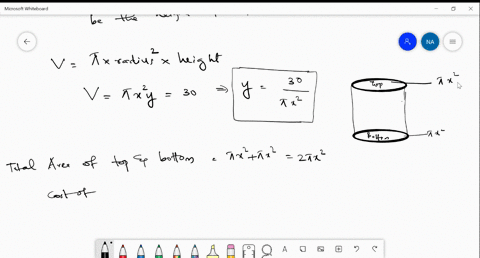 Microsoft Whiteboard
be the height
V = π x radius² x height
V = πx²y = 30 ⇒ y = 30/πx²
Top
πx²
Bottom
πx²
Total Area of top & bottom = πx²+πx² = 2πx²
Cost of
NA